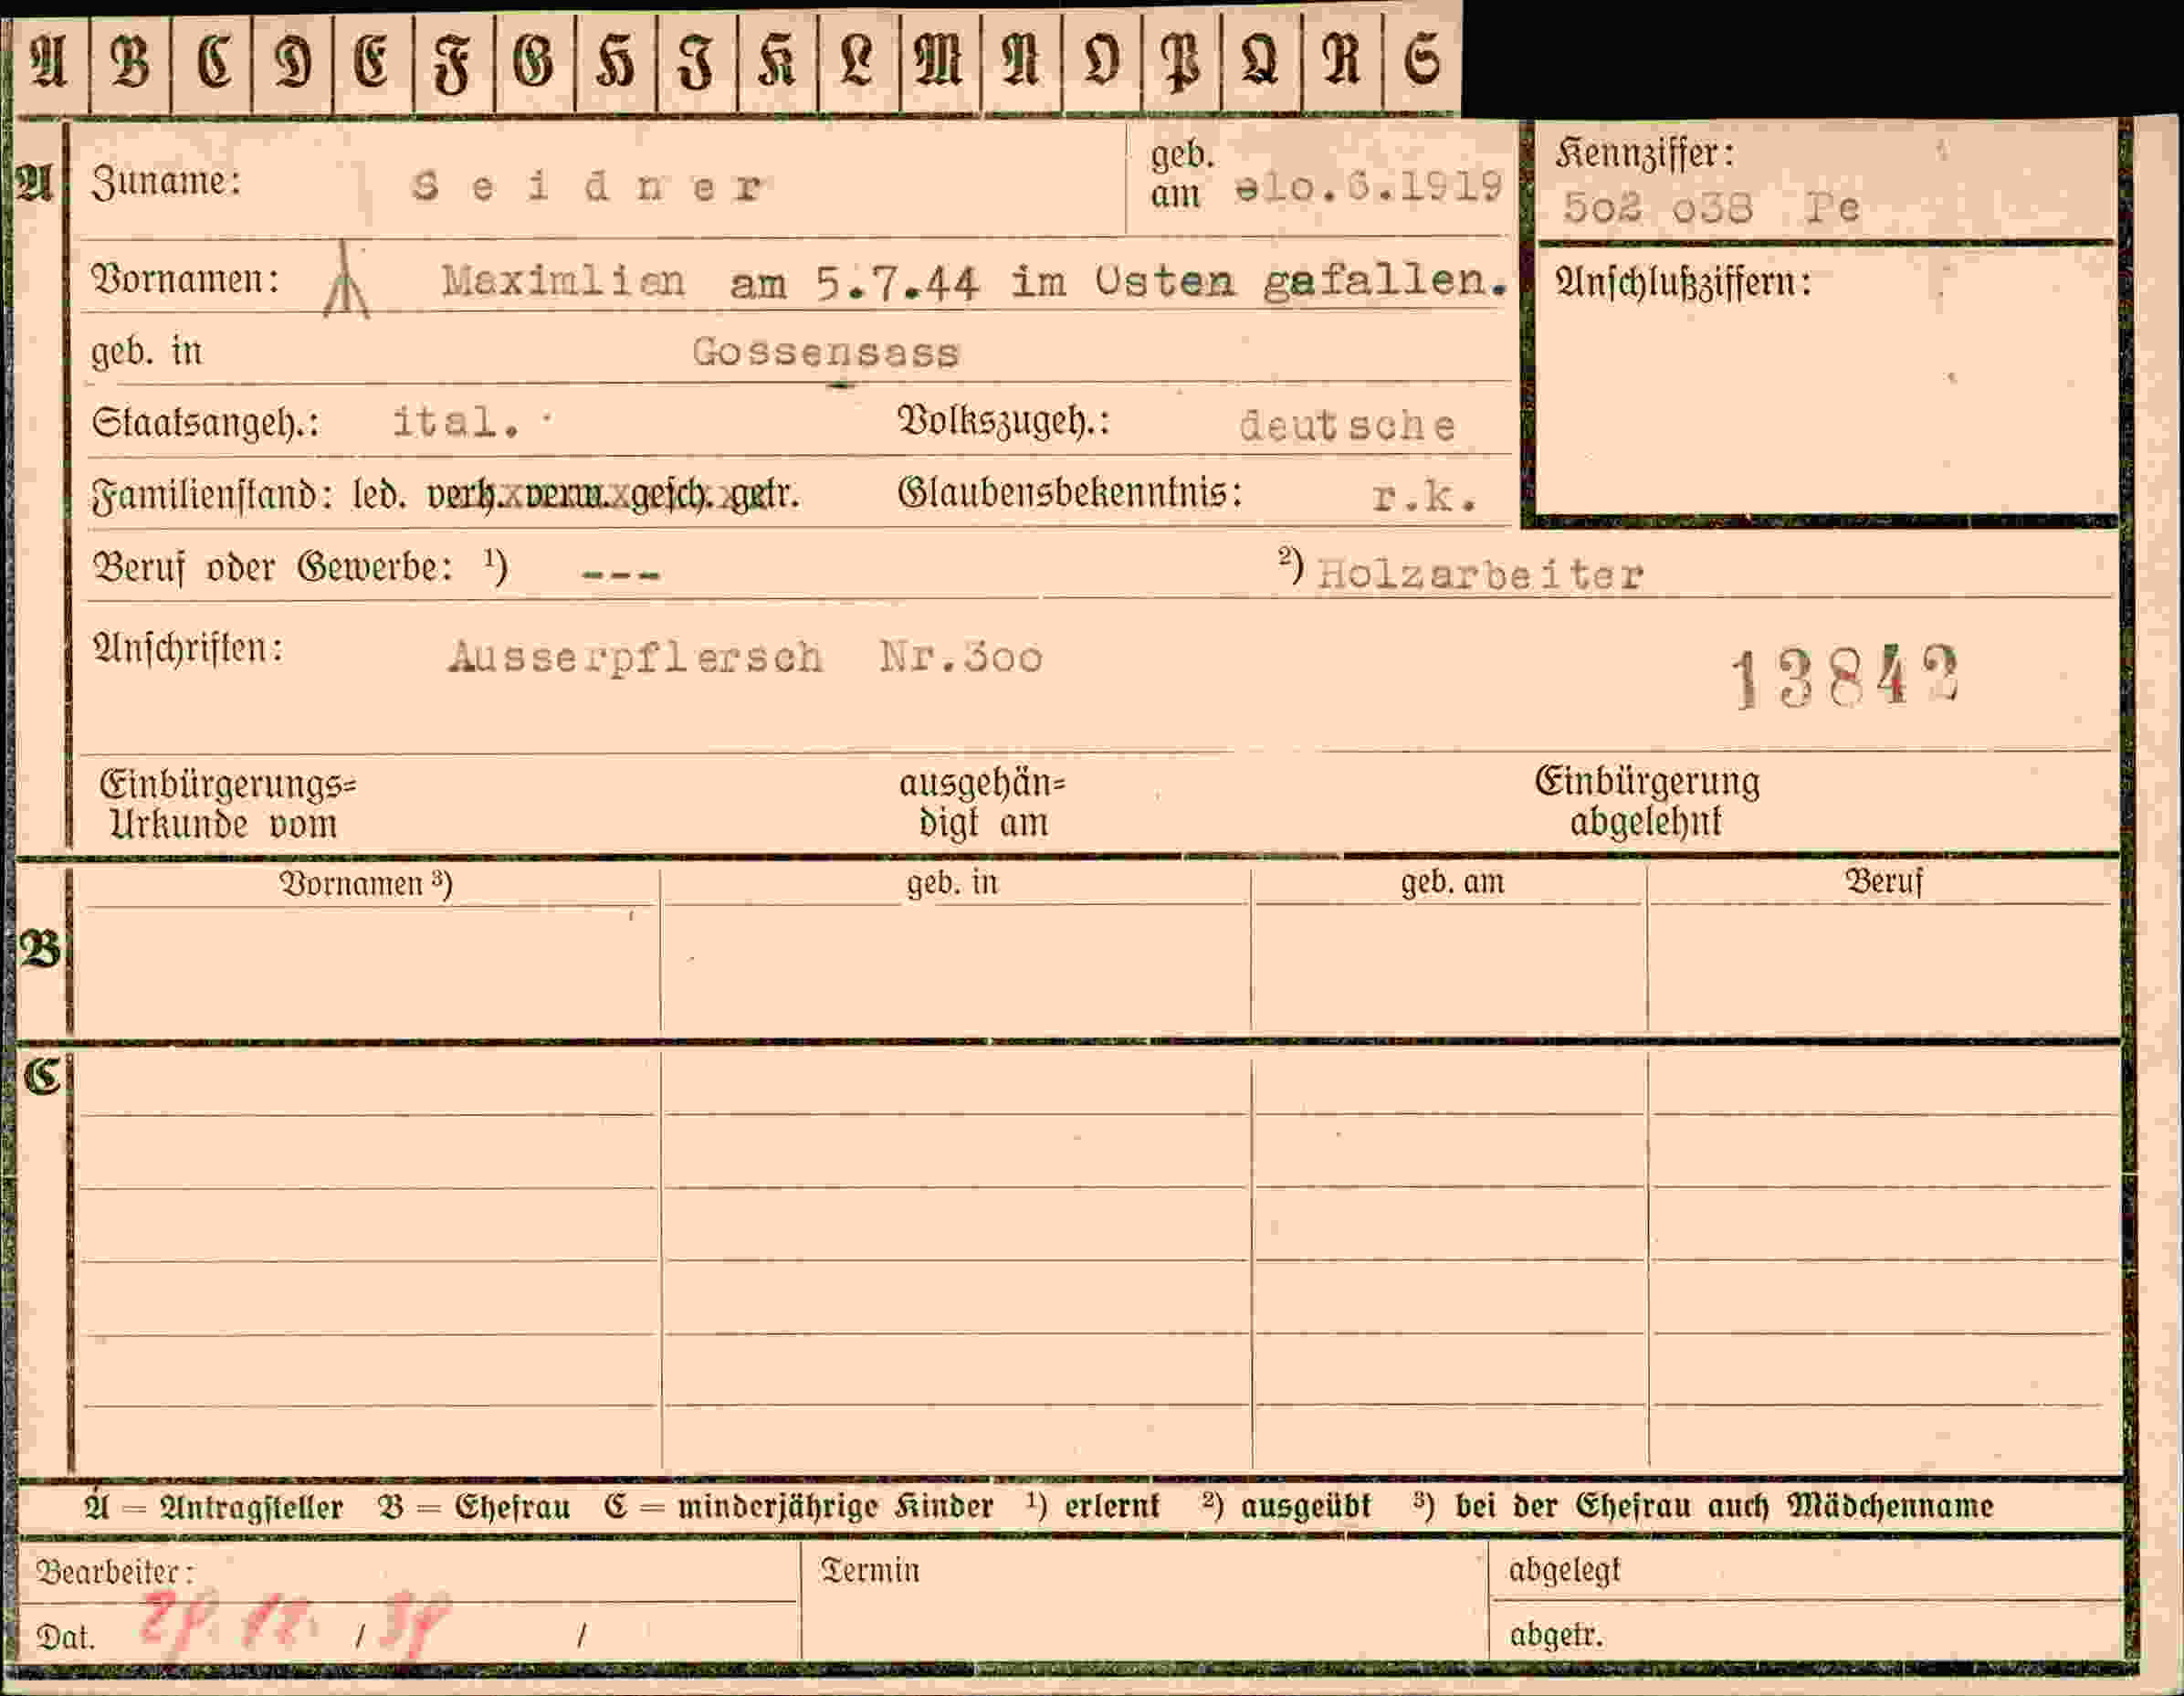 A B C D E F G H I K L M N O P Q R S
A Zuname: Seidner geb. am 10.6.1919 Kennziffer: 502 038 Pe
Vornamen: Maximlian am 5.7.44 im Osten gefallen. Anschlußziffern:
geb. in Gossensass
Staatsangeh.: ital. Volkszugeh.: deutsche
Familienstand: led. verh. verw. gesch. getr. Glaubensbekenntnis: r.k.
Beruf oder Gewerbe: 1) --- 2) Holzarbeiter
Anschriften: Ausserpflersch Nr.300 13842
Einbürgerungs= Urkunde vom ausgehän= digt am Einbürgerung abgelehnt
Vornamen 3) geb. in geb. am Beruf
B
C
A = Antragsteller B = Ehefrau C = minderjährige Kinder 1) erlernt 2) ausgeübt 3) bei der Ehefrau auch Mädchenname
Bearbeiter: Termin abgelegt
Dat. 29. 12. / 39 / abgetr.